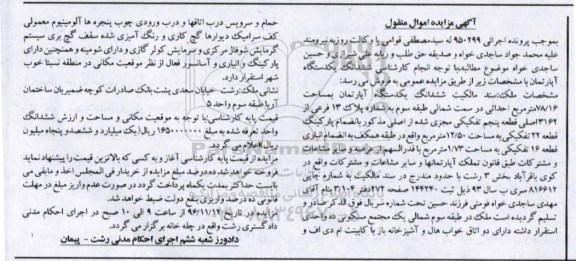 آگهی مزایده اموال منقول
بموجب پرونده اجرائی ۹۵۰۲۹۹ له سیدمصطفی قوامی با وکالت روزبه نیرومند
علیه محمد جواد ساجدی خواه و صدیقه حق طلب و ربابه علی شیرازی و حسین
ساجدی خواه موضوع مطالبه با توجه انجام کارشناسی ششدانگ یکدستگاه
آپارتمان با مشخصات زیر از طریق مزایده عمومی به فروش می رسد:
مشخصات ملک: سند مالکیت ششدانگ یکدستگاه آپارتمان بمساحت
۷۸/۱۶ مترمربع احداثی در سمت شمالی طبقه سوم به شماره پلاک ۱۳ فرعی از
۳۱۶۲ اصلی قطعه پنجم تفکیکی مجزی شده از اصلی مذکور بانضمام پارکینگ
قطعه ۲۲ تفکیکی به مساحت ۱۲/۵۰ مترمربع واقع در طبقه همکف به انضمام انباری
قطعه ۱۶ تفکیکی به مساحت ۱/۷۳ مترمربع با قدرالسهم از عرصه و سایر مشاعات
و مشترکات طبق قانون تملک آپارتمانها و سایر مشاعات و مشترکات واقع در
کوی باقرآباد بخش ۳ رشت با حدود مندرج در سند مالکیت به شماره چاپی
۸۱۶۶۱۲ سری ب سال ۹۳ ذیل ثبت ۱۴۴۲۴۰ صفحه ۲۷۲ دفتر ۳/۱۰۴ بنام آقای
مهدی ساجدی خواه فومنی فرزند حسین تحت شماره سریال فوق الذکر صادر و
تسلیم گردیده است ملک در طبقه سوم شمالی یک مجتمع مسکونی ده واحدی
استقرار داشته دارای دو اتاق خواب هال و آشپزخانه باز با کابینت ام دی اف و
حمام و سرویس درب اتاقها و درب ورودی چوب پنجره ها آلومینیوم معمولی
کف سرامیک دیوارها گچ کاری و رنگ آمیزی شده سقف گچ بری سیستم
گرمایش شوفاژ مرکزی و سرمایش کولر گازی و دارای شومینه و همچنین دارای
پارکینگ و انباری و آسانسور فعال از نظر موقعیت مکانی در منطقه نسبتا خوب
شهر استقرار دارد.
نشانی ملک: رشت خیابان سعدی پشت بانک صادرات کوچه ضمیریان ساختمان
آریا طبقه سوم واحد ۵
قیمت پایه کارشناسی: با توجه به موقعیت مکانی و مساحت و ارزش ششدانگ
واحد تعرفه شده به مبلغ ۱۶۵۰۰۰۰۰۰۰ ریال (یک میلیارد و ششصد و پنجاه میلیون
ریال) اعلام می گردد.
مزایده از قیمت پایه کارشناسی آغاز و به کسی که بالاترین قیمت را پیشنهاد نماید
فروخته خواهد شد. ده درصد مبلغ مزایده از خریدار فی المجلس اخذ و مابقی می
بایست حداکثر بمدت یکماه پرداخت گردد در صورت عدم واریز مبلغ در مهلت
قانونی ده درصد واریزی بنفع دولت ضبط خواهد شد.
مزایده در تاریخ ۹۶/۱۱/۱۲ از ساعت ۹ الی ۱۰ صبح در اجرای احکام مدنی
دادگستری رشت واقع در چله خانه برگزار می گردد.
دادورز شعبه ششم اجرای احکام مدنی رشت - پیمان